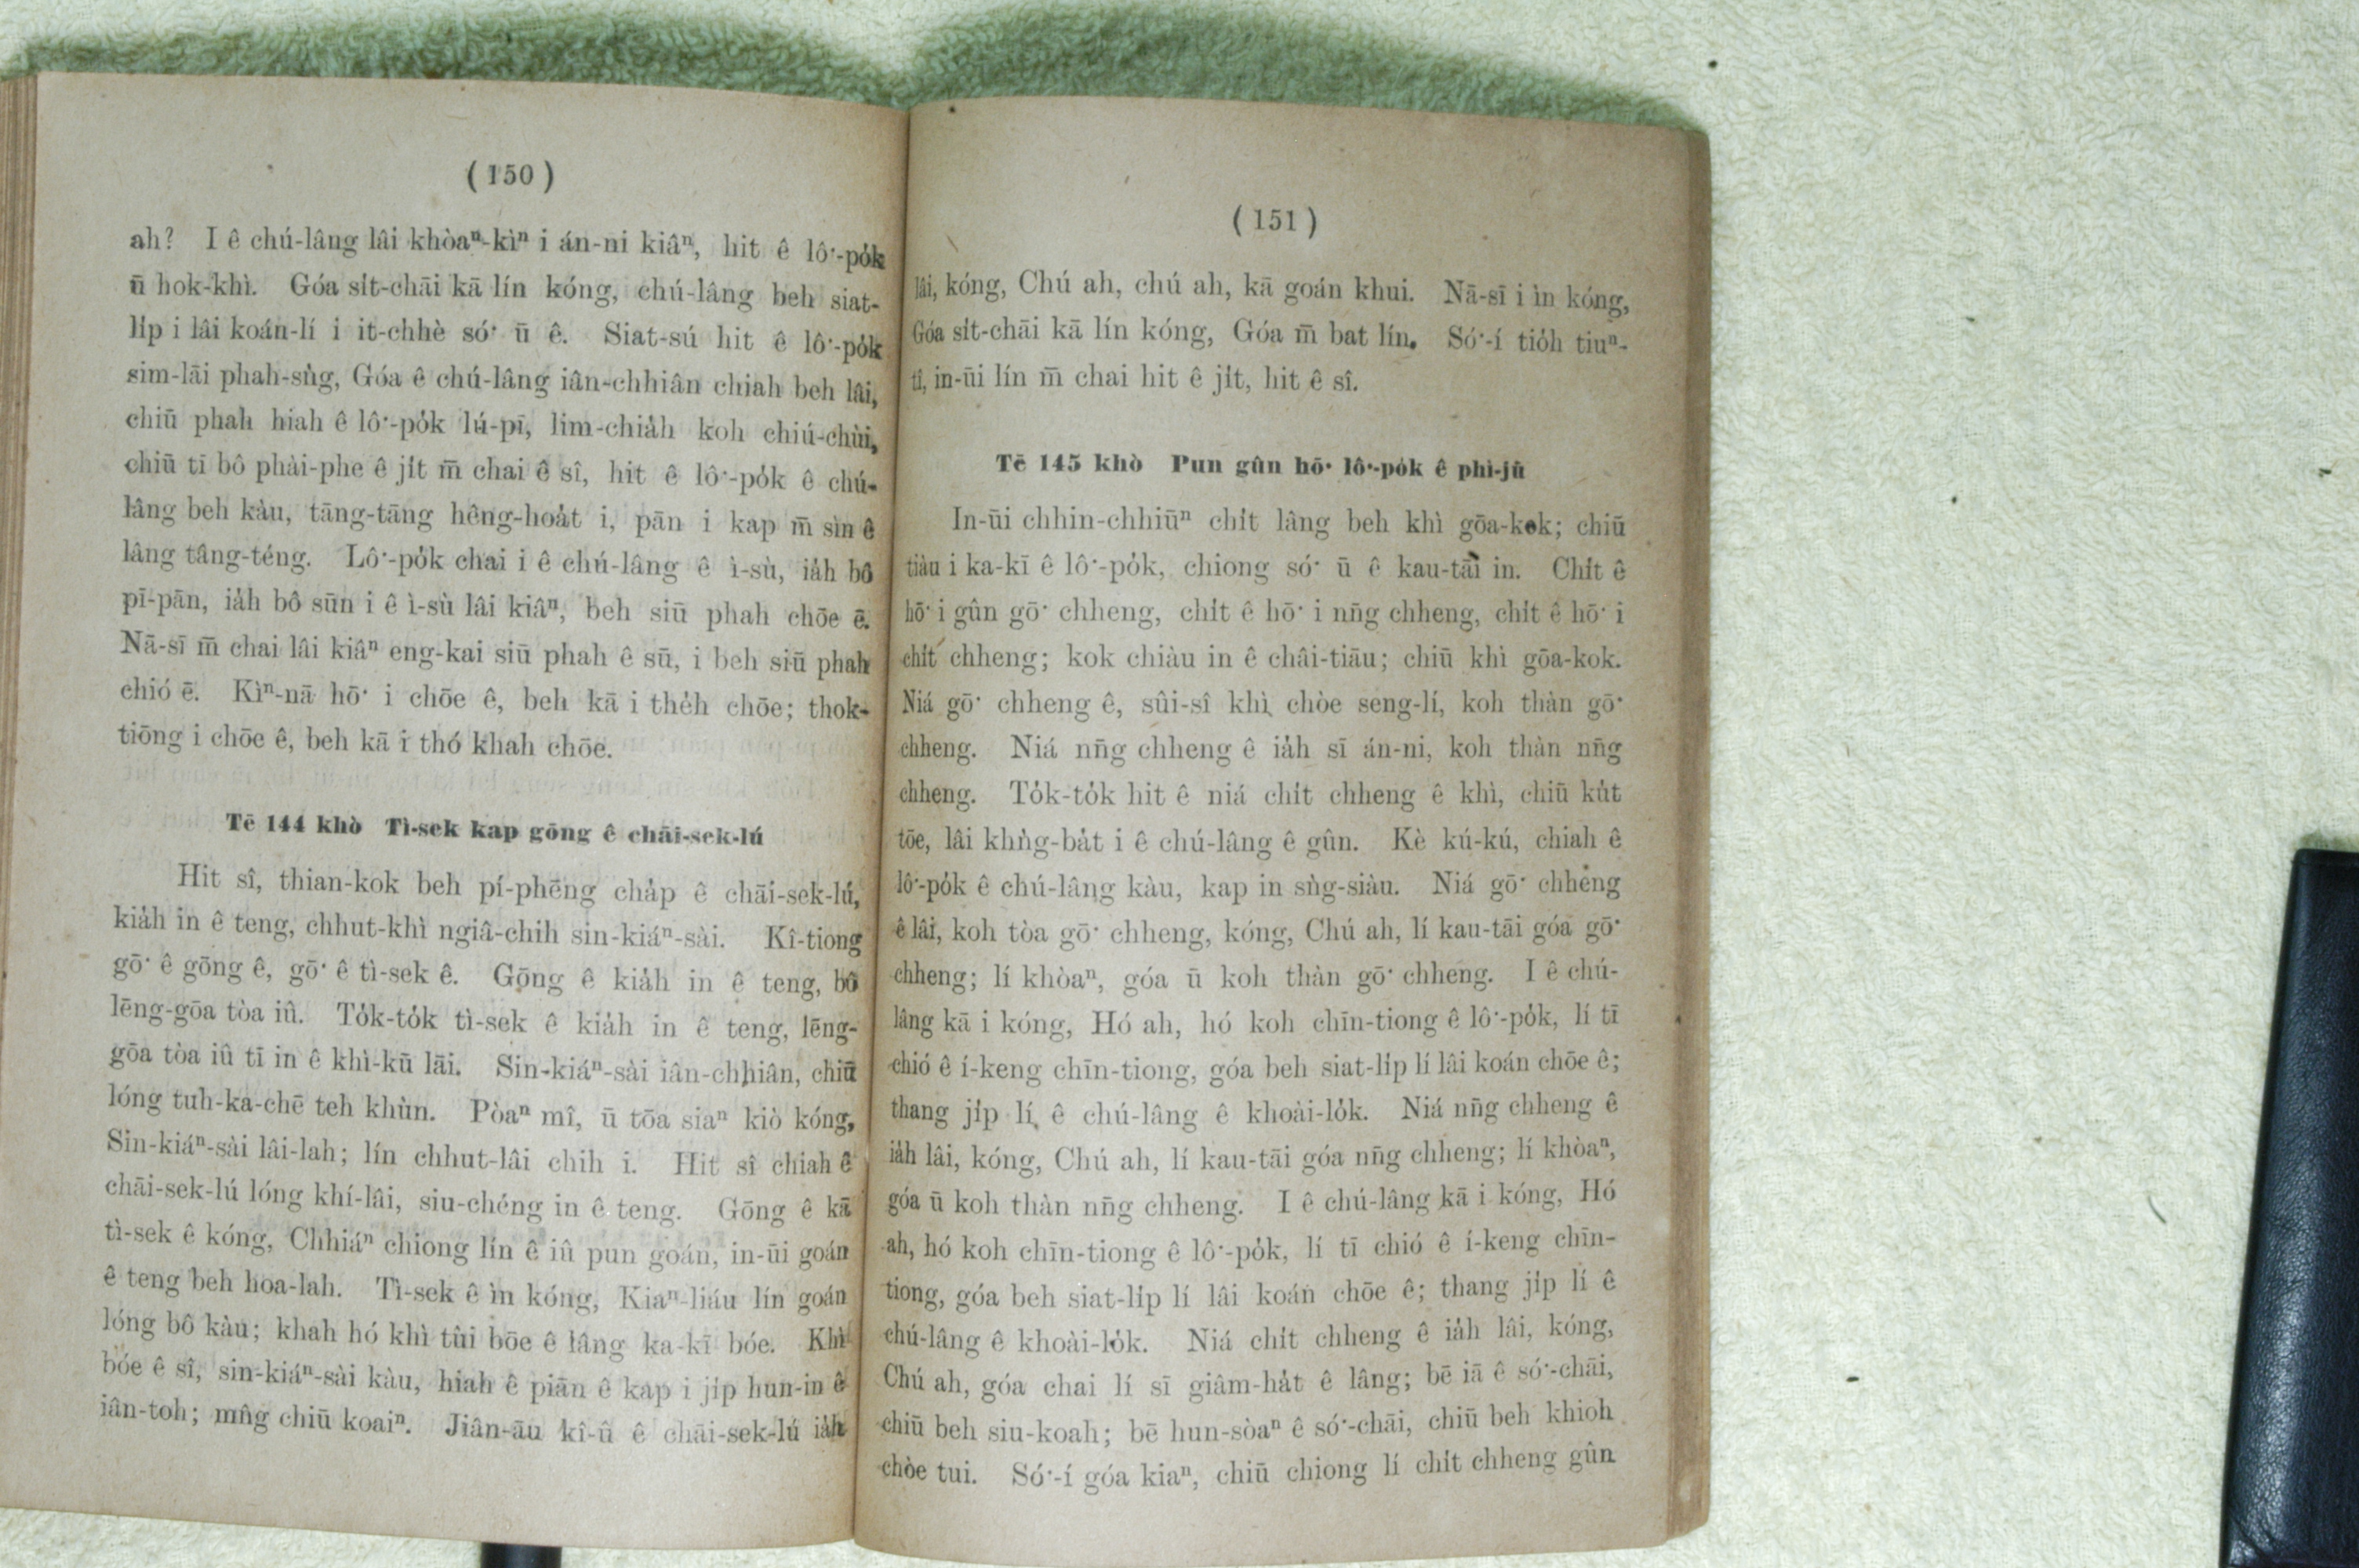 ( 150 )
ah? I ê chú-lâng lâi khòaⁿ-kìⁿ i án-ni kiâⁿ, hit ê lô͘-po̍k
ū hok-khì. Góa si̍t-chāi kā lín kóng, chú-lâng beh siat-
li̍p i lâi koán-lí i it-chhè só͘ ū ê. Siat-sú hit ê lô͘-po̍k
sim-lāi phah-sǹg, Góa ê chú-lâng iân-chhiân chiah beh lâi,
chiū phah hiah ê lô͘-po̍k lú-pī, lim-chia̍h koh chiú-chùi,
chiū tī bô phài-phe ê ji̍t m̄ chai ê sî, hit ê lô͘-po̍k ê chú-
lâng beh kàu, tāng-tāng hêng-hoa̍t i, pān i kap m̄ sìn ê
lâng tâng-téng. Lô͘-po̍k chai i ê chú-lâng ê ì-sù, ia̍h bô
pī-pān, ia̍h bô sūn i ê ì-sù lâi kiâⁿ, beh siū phah chōe ē.
Nā-sī m̄ chai lâi kiâⁿ eng-kai siū phah ê sū, i beh siū phah
chió ē. Kìⁿ-nā hō͘ i chōe ê, beh kā i the̍h chōe; thok-
tiōng i chōe ê, beh kā i thó khah chōe.
Tē 144 khò Tì-sek kap gōng ê chāi-sek-lú
Hit sî, thian-kok beh pí-phēng cha̍p ê chāi-sek-lú,
kia̍h in ê teng, chhut-khì ngiâ-chih sin-kiáⁿ-sài. Kî-tiong
gō͘ ê gōng ê, gō͘ ê tì-sek ê. Gōng ê kia̍h in ê teng, bô
lēng-gōa tòa iû. To̍k-to̍k tì-sek ê kia̍h in ê teng, lēng-
gōa tòa iû tī in ê khì-kū lāi. Sin-kiáⁿ-sài iân-chhiân, chiū
lóng tuh-ka-chē teh khùn. Pòaⁿ mî, ū tōa siaⁿ kiò kóng,
Sin-kiáⁿ-sài lâi-lah; lín chhut-lâi chih i. Hit sî chiah ê
chāi-sek-lú lóng khí-lâi, siu-chéng in ê teng. Gōng ê kā
tì-sek ê kóng, Chhiáⁿ chiong lín ê iû pun goán, in-ūi goán
ê teng beh hoa-lah. Tì-sek ê ìn kóng, Kiaⁿ-liáu lín goán
lóng bô kàu; khah hó khì tùi bōe ê lâng ka-kī bóe. Khì
bóe ê sî, sin-kiáⁿ-sài kàu, hiah ê piān ê kap i ji̍p hun-in ê
iân-toh; mn̂g chiū koaiⁿ. Jiân-āu kî-û ê chāi-sek-lú ia̍h
( 151 )
lâi, kóng, Chú ah, chú ah, kā goán khui. Nā-sī i ìn kóng,
Góa si̍t-chāi kā lín kóng, Góa m̄ bat lín. Só͘-í tio̍h tiuⁿ-
tî, in-ūi lín m̄ chai hit ê ji̍t, hit ê sî.
Tē 145 khò Pun gûn hō͘ lô͘-po̍k ê phì-jū
In-ūi chhin-chhiūⁿ chi̍t lâng beh khì gōa-kok; chiū
tiàu i ka-kī ê lô͘-po̍k, chiong só͘ ū ê kau-tāi in. Chi̍t ê
hō͘ i gûn gō͘ chheng, chi̍t ê hō͘ i nn̄g chheng, chi̍t ê hō͘ i
chi̍t chheng; kok chiàu in ê châi-tiāu; chiū khì gōa-kok.
Niá gō͘ chheng ê, sûi-sî khì chòe seng-lí, koh thàn gō͘
chheng. Niá nn̄g chheng ê ia̍h sī án-ni, koh thàn nn̄g
chheng. To̍k-to̍k hit ê niá chi̍t chheng ê khì, chiū ku̍t
tōe, lâi khǹg-ba̍t i ê chú-lâng ê gûn. Kè kú-kú, chiah ê
lô͘-po̍k ê chú-lâng kàu, kap in sǹg-siàu. Niá gō͘ chheng
ê lâi, koh tòa gō͘ chheng, kóng, Chú ah, lí kau-tāi góa gō͘
chheng; lí khòaⁿ, góa ū koh thàn gō͘ chheng. I ê chú-
lâng kā i kóng, Hó ah, hó koh chīn-tiong ê lô͘-po̍k, lí tī
chió ê í-keng chīn-tiong, góa beh siat-li̍p lí lâi koán chōe ê;
thang ji̍p lí ê chú-lâng ê khoài-lo̍k. Niá nn̄g chheng ê
ia̍h lâi, kóng, Chú ah, lí kau-tāi góa nn̄g chheng; lí khòaⁿ,
góa ū koh thàn nn̄g chheng. I ê chú-lâng kā i kóng, Hó
ah, hó koh chīn-tiong ê lô͘-po̍k, lí tī chió ê í-keng chīn-
tiong, góa beh siat-li̍p lí lâi koán chōe ê; thang ji̍p lí ê
chú-lâng ê khoài-lo̍k. Niá chi̍t chheng ê ia̍h lâi, kóng,
Chú ah, góa chai lí sī giâm-ha̍t ê lâng; bē iā ê só͘-chāi,
chiū beh siu-koah; bē hun-sòaⁿ ê só͘-chāi, chiū beh khioh
chòe tui. Só͘-í góa kiaⁿ, chiū chiong lí chi̍t chheng gûn